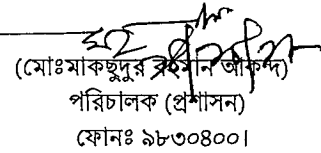 (মোঃমাকছুদুর রহমান আকন্দ)
পরিচালক (প্রশাসন)
ফোনঃ ৯৮৩০৪০০।